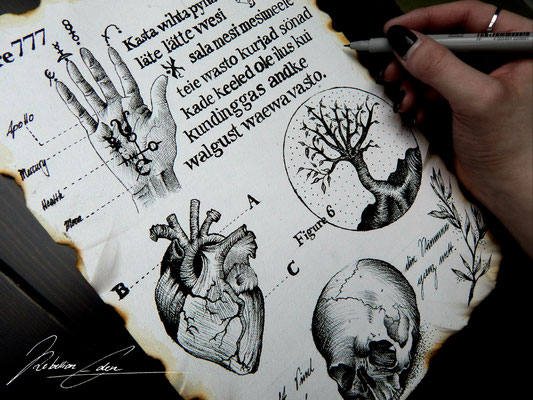 re777
Kasta wihta pyha
läte lätte wesi
sala mesi mesimeele
teie wasto kurjad sõnad
kade keeled ole ilus kui
kundinggas andke
walgust waewa wasto.
Apollo
Mercury
Health
A
B
C
Figure 6
ganz nett.
Rebellion Eden